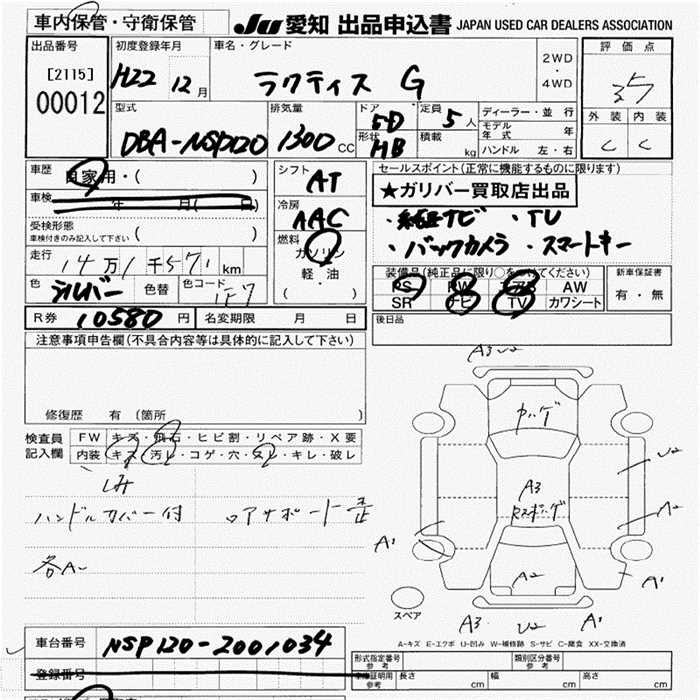 車内保管・守衛保管
JU 愛知 出品申込書 JAPAN USED CAR DEALERS ASSOCIATION
出品番号
[2115]
00012
初度登録年月
H22 12月
車名・グレード
ラクティス G
2WD
・
4WD
評価点
3.5
外装 内装
C C
型式
DBA-NSP120
排気量
1300 CC
ドア
5D
形状
HB
定員
5人
積載
kg
ディーラー・並行
モデル年式 年
ハンドル 左・右
車歴
自家用・( )
車検
年 月( 日)
受検形態
車検付きのみ記入して下さい ( )
走行
14万1千571km
色
シルバー
色替
色コード
1F7
シフト
AT
冷房
AAC
燃料
ガソリン
軽・油
( )
セールスポイント(正常に機能するものに限ります)
★ガリバー買取店出品
・純正ナビ ・TV
・バックカメラ ・スマートキー
装備品(純正品に限り○をつけてください)
PS PW エアB AW
SR ナビ TV カワシート
新車保証書
有・無
R券 10580円
名変期限 月 日
後日品
注意事項申告欄(不具合内容等は具体的に記入して下さい)
修復歴 有 (箇所 )
検査員記入欄
FW キズ・飛石・ヒビ割・リペア跡・X要
内装 キズ・汚レ・コゲ・穴・ヌレ・キレ・破レ
シミ
ハンドルカバー付 リアサポート歪
各A〜
A3 U2
カツゲ
U2
A3
A2
A1
A1
A2
A3 U2 A1
スペア
A-キズ E-エクボ U-凹み W-補修跡 S-サビ C-腐食 XX-交換済
車台番号 NSP120-2001034
登録番号
形式指定番号
参考
類別区分番号
参考
車庫証明用
参考
長さ cm 幅 cm 高さ cm